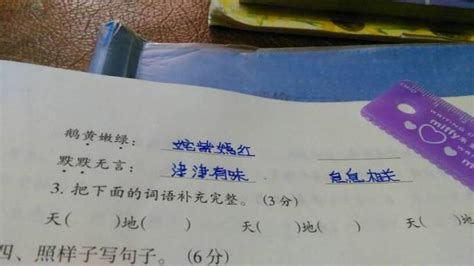 鹅黄嫩绿：姹紫嫣红
默默无言：津津有味 息息相关
3. 把下面的词语补充完整。（3分）
天（ ）地（ ） 天（ ）地（ ）
四、照样子写句子。（6分）
miffy